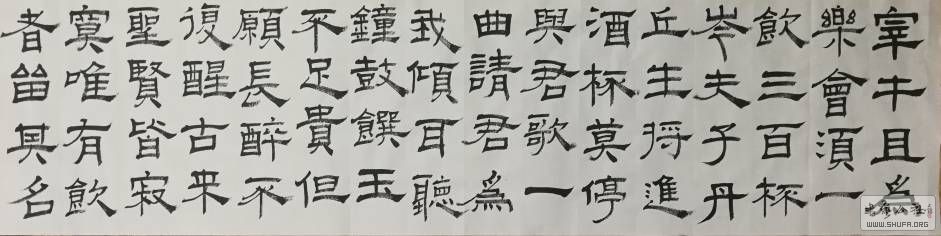 宰牛且為
樂會須一
飲三百杯
岑夫子丹
丘生将進
酒杯莫停
與君歌一
曲請君為
我傾耳聽
鐘鼓饌玉
不足貴但
願長醉不
復醒古来
聖賢皆寂
寞唯有飲
者留其名
WWW.SHUFA.ORG